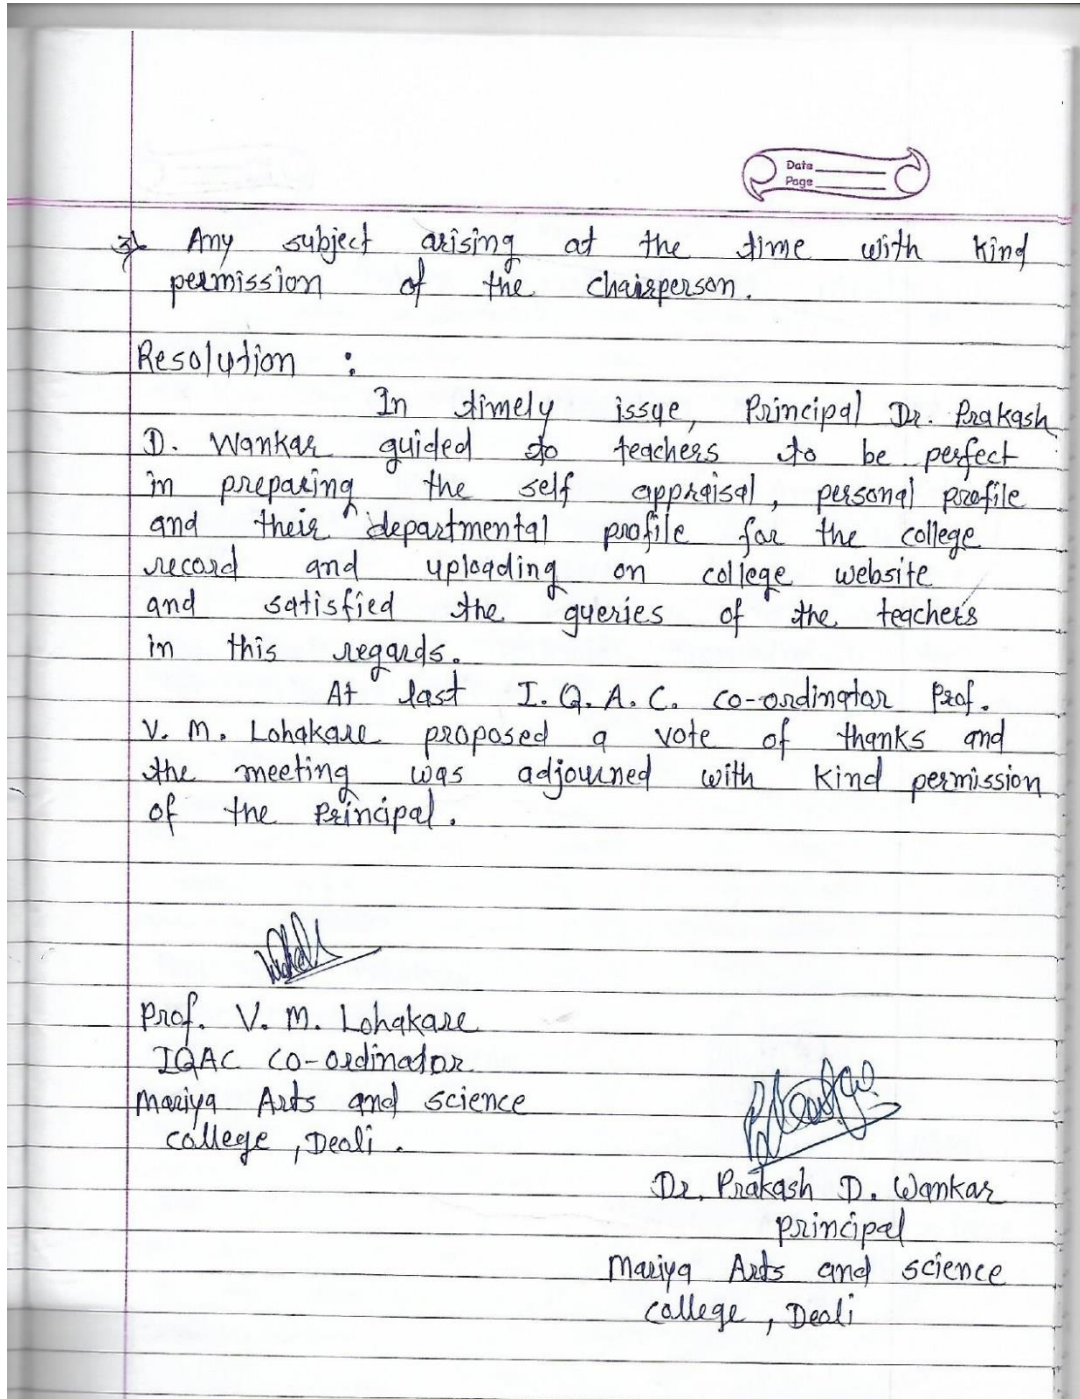 Date
Page
3) Any subject arising at the time with kind
permission of the chairperson.
Resolution :
In timely issue, Principal Dr. Prakash
D. Wankar guided to teachers to be perfect
in preparing the self appraisal, personal profile
and their departmental profile for the college
record and uploading on college website
and satisfied the queries of the teachers
in this regards.
At last I.Q.A.C. co-ordinator Prof.
V. M. Lohakare proposed a vote of thanks and
the meeting was adjourned with kind permission
of the Principal.
Prof. V. M. Lohakare
IQAC co-ordinator
Mariya Arts and science
college, Deoli.
Dr. Prakash D. Wankar
principal
Mariya Arts and science
college, Deoli